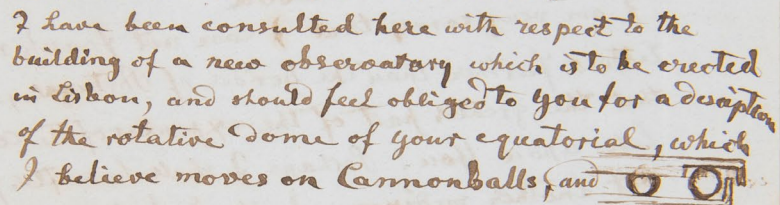 I have been consulted here with respect to the
building of a new observatory which is to be erected
in Lisbon, and should feel obliged to you for a desciption
of the rotative dome of your equatorial, which
I believe moves on Cannonballs, and